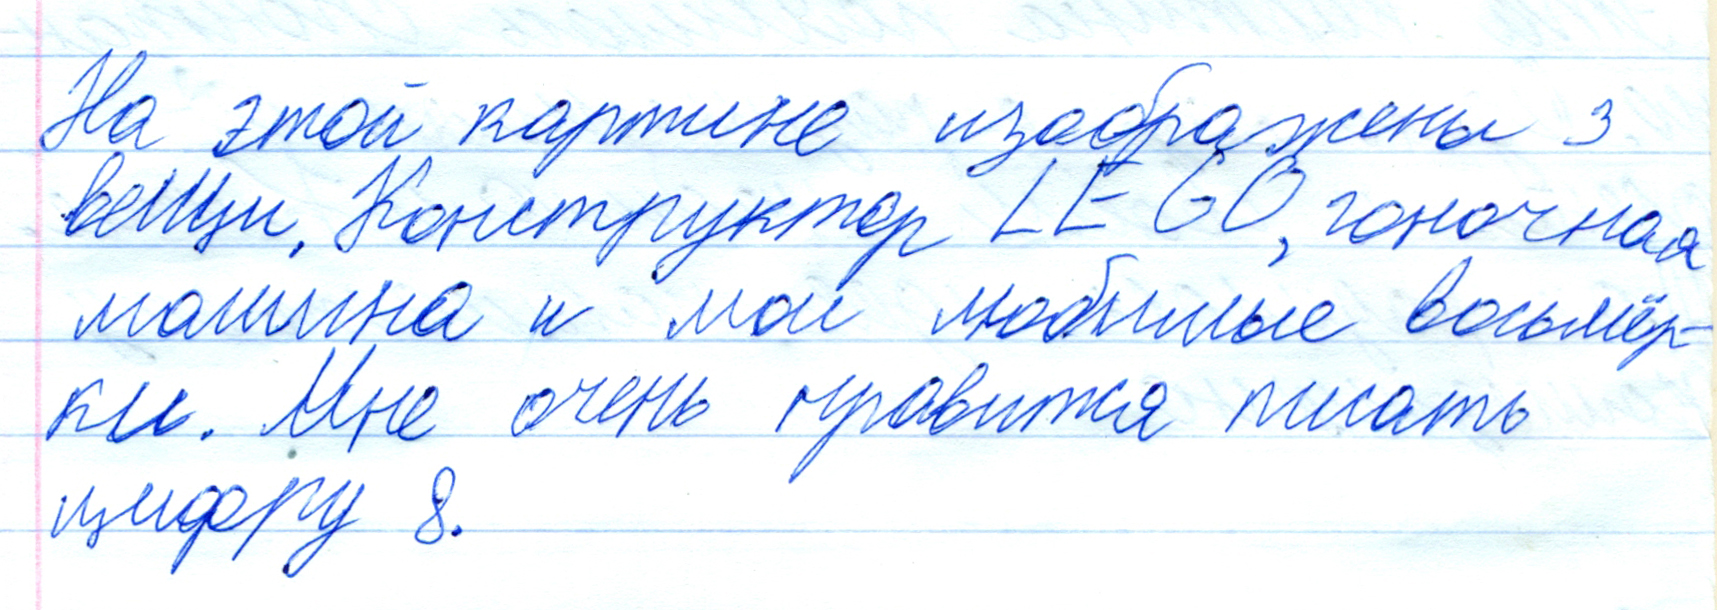 На этой картине изображены 3
вещи, Конструктор LEGO, гоночная
машина и мои любимые восьмёр-
ки. Мне очень нравится писать
цифру 8.